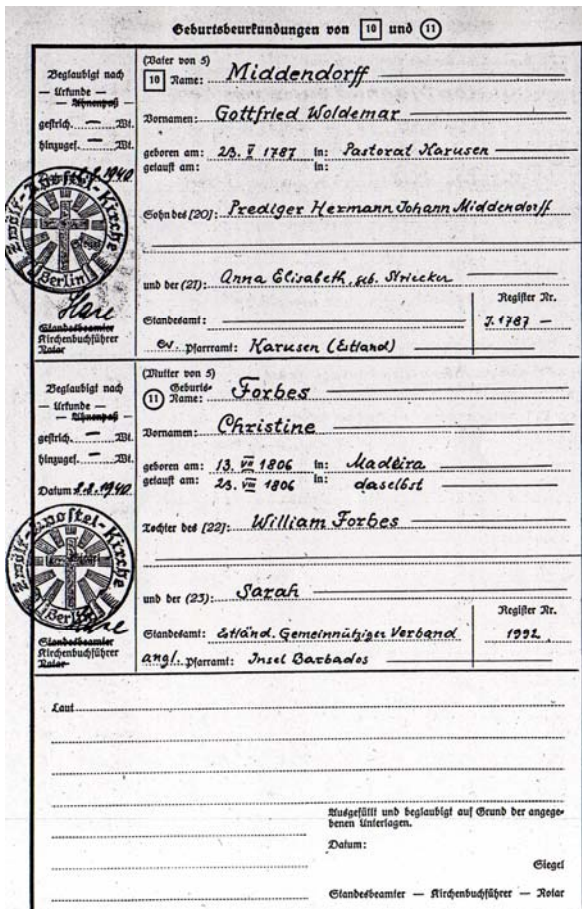 Geburtsbeurkundungen von 10 und 11
Beglaubigt nach
— Urkunde —
— Ahnenpaß —
gestrich. — Wt.
hinzugef. — Wt.
8.1940.
Zwölf-Apostel-Kirche
Siegel
Berlin
Standesbeamter
Kirchenbuchführer
Notar
(Vater von 5)
10 Name: Middendorff
Vornamen: Gottfried Woldemar
geboren am: 23. V 1787 in: Pastorat Karusen
getauft am: in:
Sohn des (20): Prediger Hermann Johann Middendorff
und der (21): Anna Elisabeth, geb. Stricker
Register Nr.
Standesamt: J. 1787 —
ev. Pfarramt: Karusen (Estland)
Beglaubigt nach
— Urkunde —
— Ahnenpaß —
gestrich. — Wt.
hinzugef. — Wt.
Datum 8.8.1940.
Zwölf-Apostel-Kirche
Berlin
Standesbeamter
Kirchenbuchführer
Notar
(Mutter von 5)
11 Geburts-
Name: Forbes
Vornamen: Christine
geboren am: 13. VII 1806 in: Madeira
getauft am: 23. VII 1806 in: daselbst
Tochter des (22): William Forbes
und der (23): Sarah
Register Nr.
Standesamt: Estländ. Gemeinnütziger Verband 1992.
angl. Pfarramt: Insel Barbados
Laut
Ausgefüllt und beglaubigt auf Grund der angege-
benen Unterlagen.
Datum:
Siegel
Standesbeamter — Kirchenbuchführer — Notar